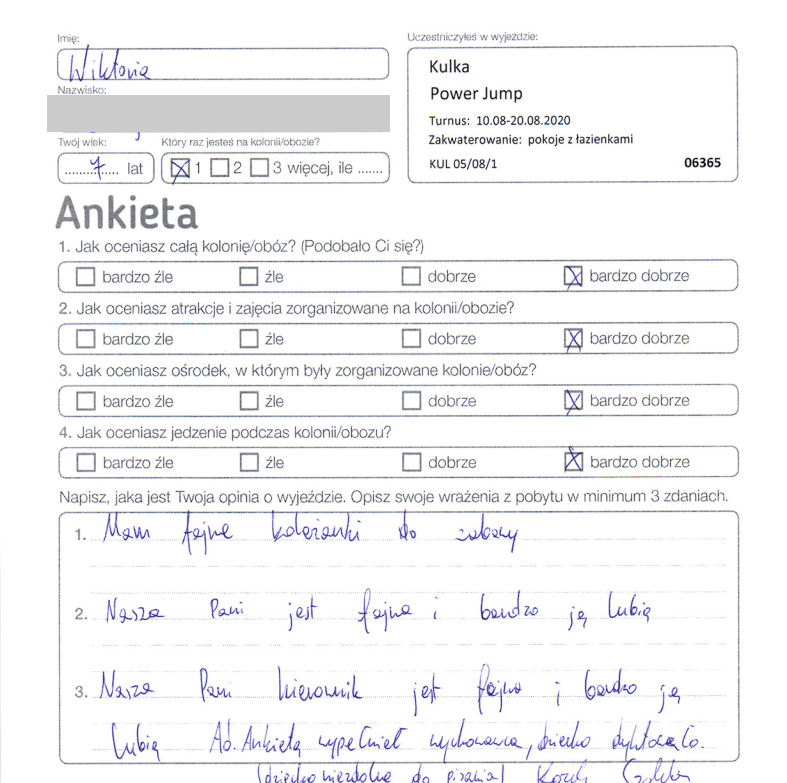 Imię:
Uczestniczyłeś w wyjeździe:
Wiktoria
Kulka
Nazwisko:
Power Jump
Turnus: 10.08-20.08.2020
Twój wiek: Który raz jesteś na kolonii/obozie?
Zakwaterowanie: pokoje z łazienkami
.......7...... lat 1 2 3 więcej, ile .......
KUL 05/08/1 06365
Ankieta
1. Jak oceniasz całą kolonię/obóz? (Podobało Ci się?)
bardzo źle źle dobrze bardzo dobrze
2. Jak oceniasz atrakcje i zajęcia zorganizowane na kolonii/obozie?
bardzo źle źle dobrze bardzo dobrze
3. Jak oceniasz ośrodek, w którym były zorganizowane kolonie/obóz?
bardzo źle źle dobrze bardzo dobrze
4. Jak oceniasz jedzenie podczas kolonii/obozu?
bardzo źle źle dobrze bardzo dobrze
Napisz, jaka jest Twoja opinia o wyjeździe. Opisz swoje wrażenia z pobytu w minimum 3 zdaniach.
1. Mam fajne koleżanki do zabawy
2. Nasza Pani jest fajna i bardzo ją lubią
3. Nasza Pani kierownik jest fajna i bardzo ją
lubią Ad. Ankietą wypełniał wychowawca, dziecko dyktowało.
(dziecko niezdolne do pisania)